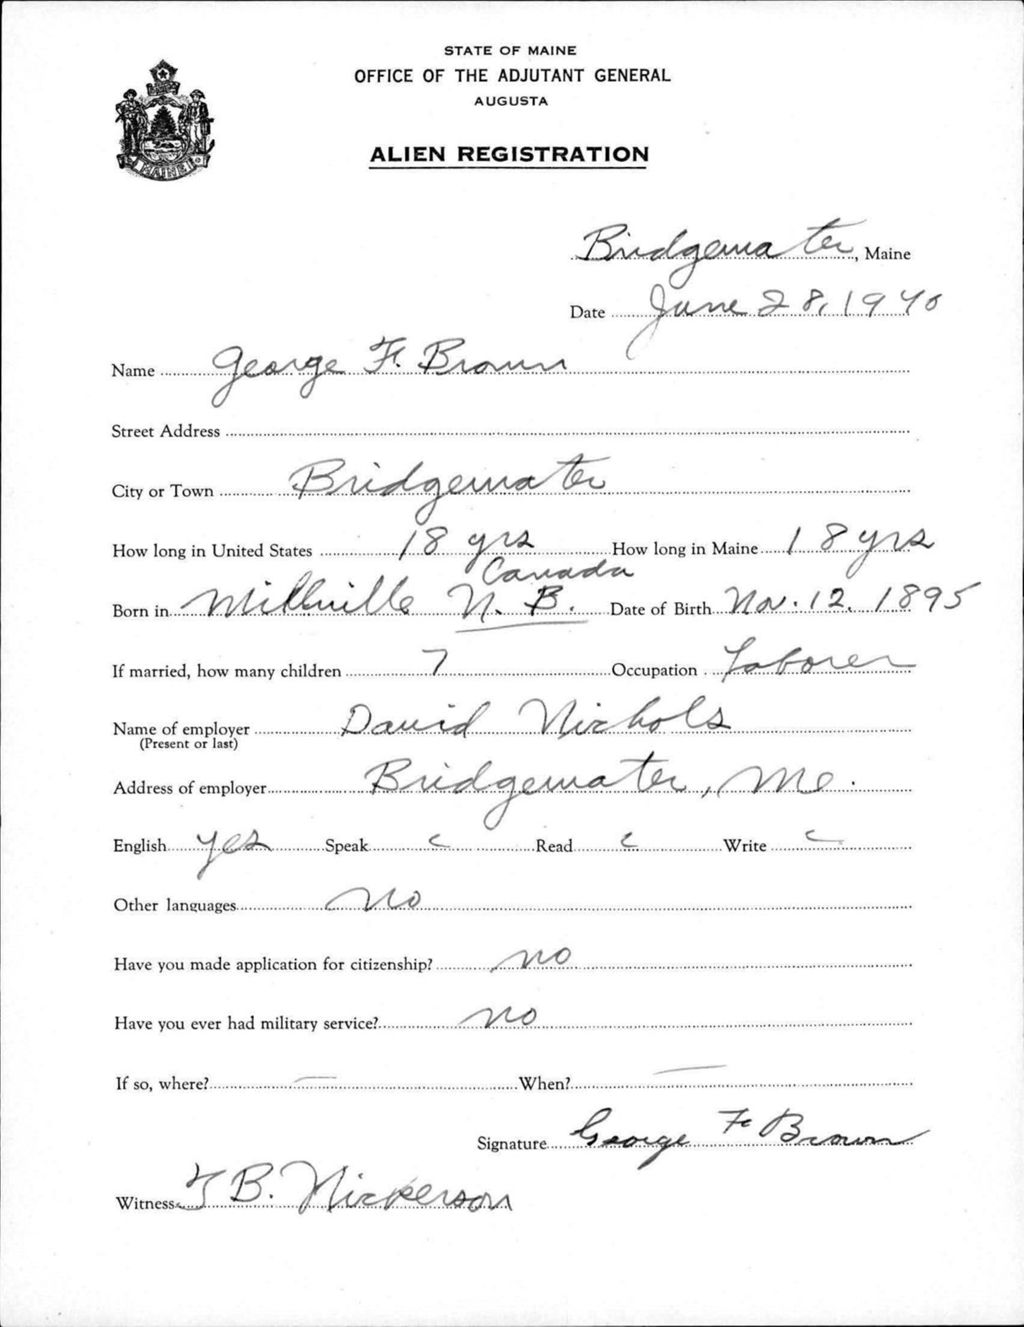 STATE OF MAINE
OFFICE OF THE ADJUTANT GENERAL
AUGUSTA
ALIEN REGISTRATION
MAINE
Bridgewater, Maine
Date June 28, 1940
Name George F. Brown
Street Address
City or Town Bridgewater
How long in United States 18 yrs How long in Maine 18 yrs
Canada
Born in Millville N. B. Date of Birth Nov. 12, 1895
If married, how many children 7 Occupation Laborer
Name of employer David Nichols
(Present or last)
Address of employer Bridgewater, Me.
English yes Speak " Read " Write "
Other languages no
Have you made application for citizenship? no
Have you ever had military service? no
If so, where? — When? —
Signature George F Brown
Witness B. Nickerson